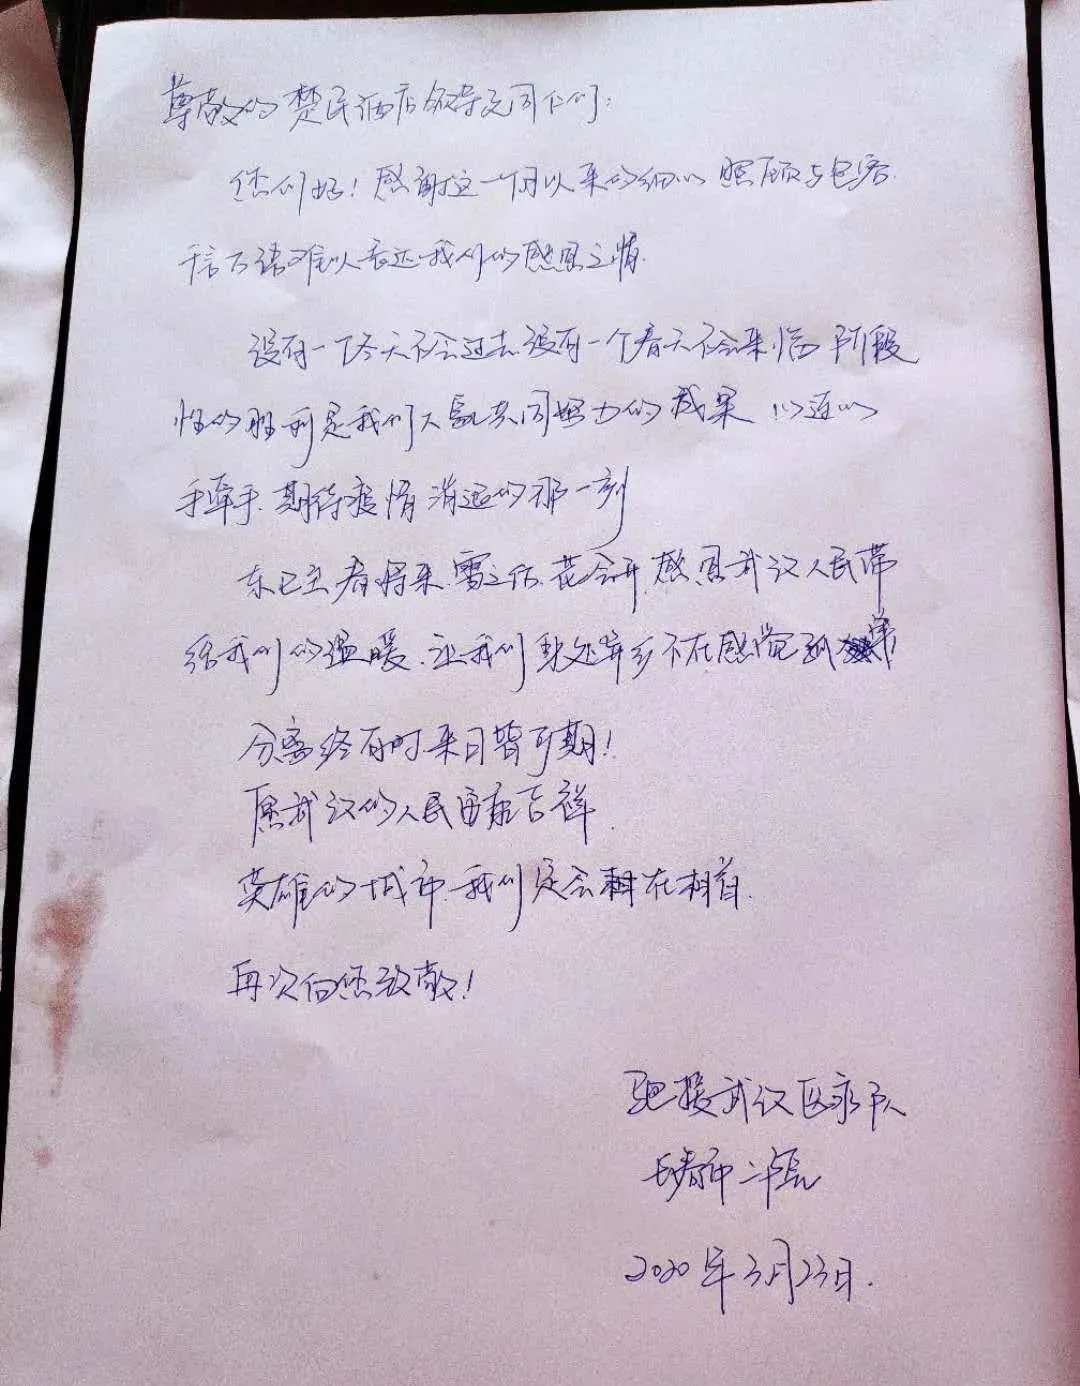 尊敬的楚民酒店领导及同仁们：
您们好！感谢这一个月以来的细心照顾与包容.
千言万语难以表达我们的感恩之情.
没有一个冬天不会过去没有一个春天不会来临 阶段
性的胜利是我们大家共同努力的成果 心连心
手牵手.期待疫情消退的那一刻
冬已至春将来.雪之后.花会开.感恩武汉人民带
给我们的温暖.让我们身处异乡不在感觉到
分离终有时.来日皆可期！
愿武汉的人民安康吉祥.
英雄的城市.我们定会再在相首.
再次向您致敬！
驰援武汉医疗队
长春市二中医院
2020年3月23日.